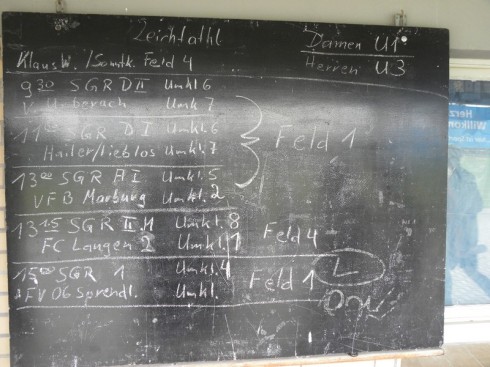 Leichtathl
Damen U1
Klaus W. /Somtk. Feld 4
Herren U3
9 30 SGR D II Umkl 6
V. Urberach Umkl. 7
SGR D I Umkl. 6
Hailer/lieblos Umkl. 7
Feld 1
13 00 SGR A I Umkl. 5
VFB Marburg Umkl. 2
13 15 SGR II. M Umkl. 8
FC Langen 2 Umkl. 1
Feld 4
15 00 SGR 1 Umkl. 4
FV 06 Sprendl. Umkl.
Feld 1
L
Herz
Willkom